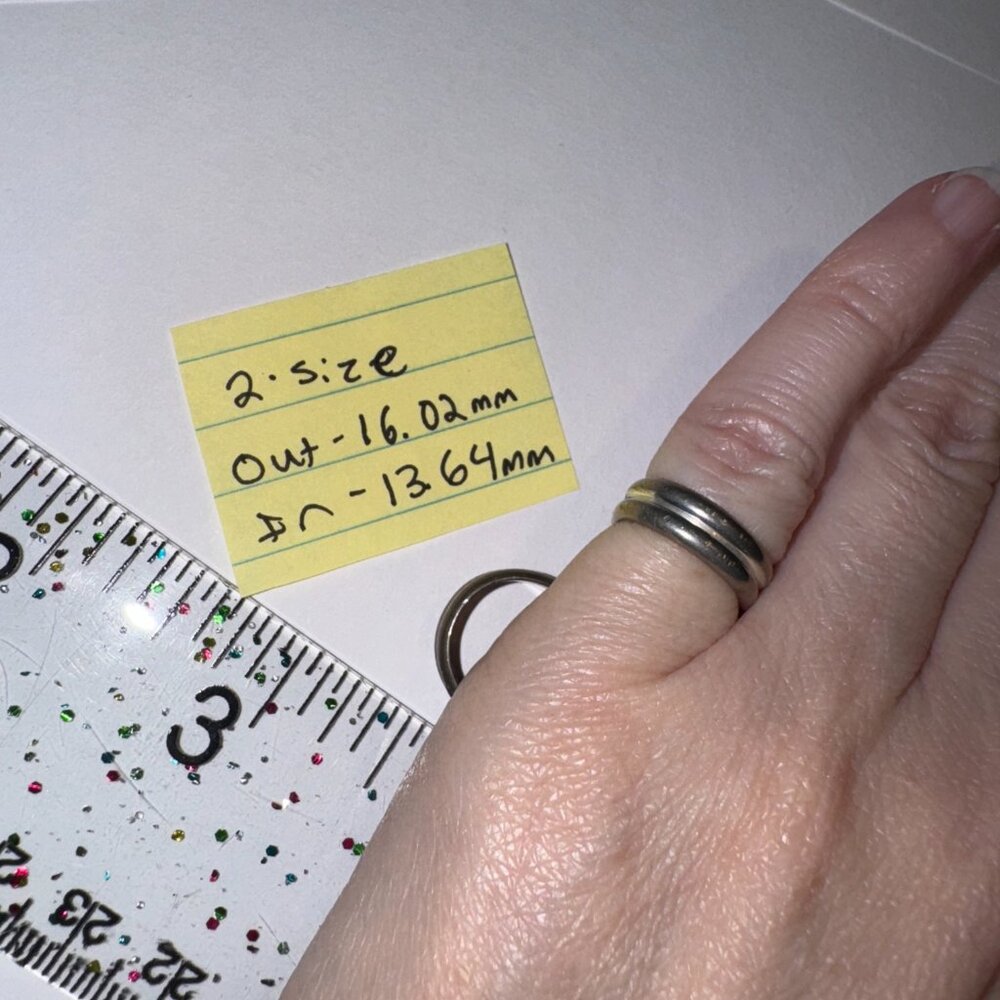 2. size
Out - 16.02mm
In - 13.64mm
3
4
23
22